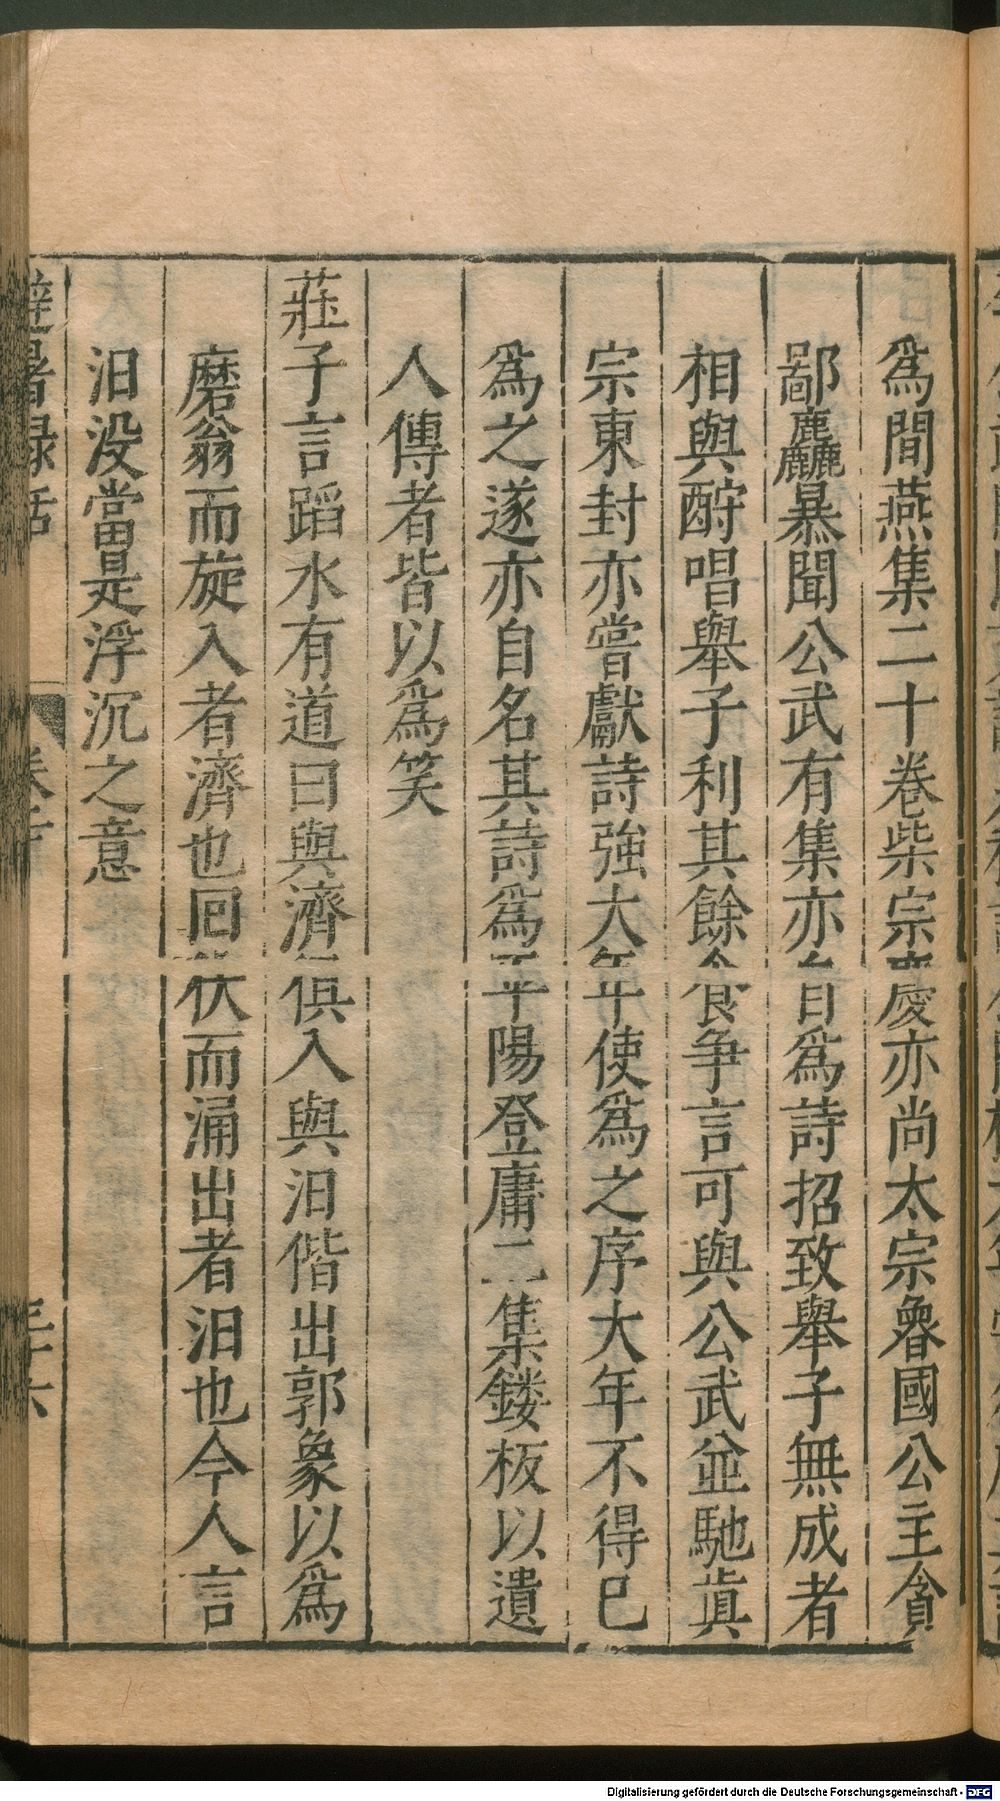 爲閒燕集二十卷柴宗慶亦尚太宗魯國公主貪
鄙麤暴聞公武有集亦自爲詩招致舉子無成者
相與酧唱舉子利其餘食争言可與公武並馳眞
宗東封亦嘗獻詩強大年使爲之序大年不得已
爲之遂亦自名其詩爲平陽登庸二集鏤板以遺
人傳者皆以爲笑
莊子言蹈水有道曰與濟俱入與汨偕出郭象以爲
磨翁而旋入者濟也回伏而涌出者汨也今人言
汨没當是浮沉之意
避暑録話
Digitalisierung gefördert durch die Deutsche Forschungsgemeinschaft - DFG